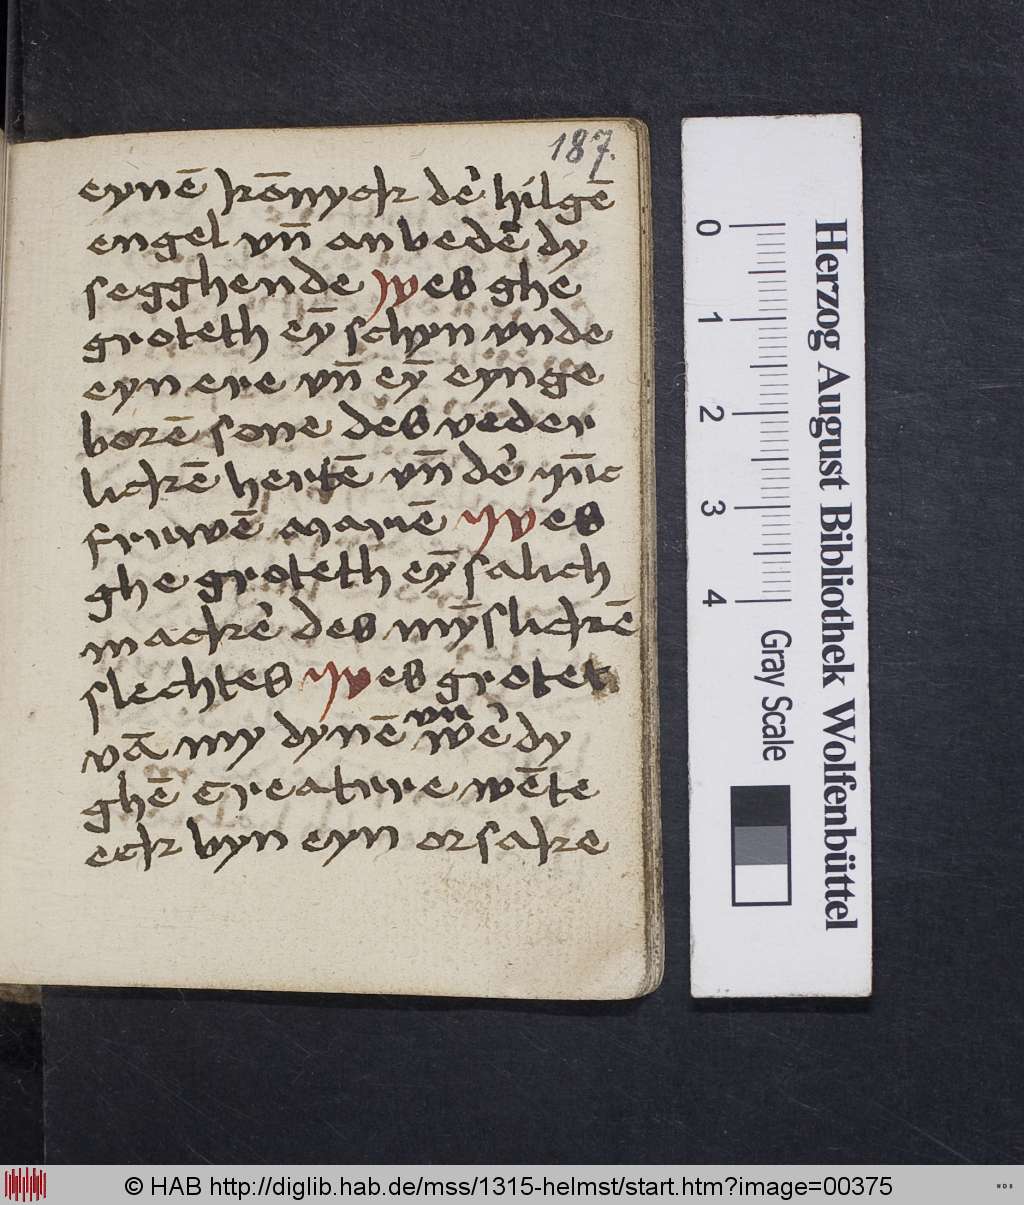 187.
eynē konyck dē hilgē
engel vn̄ anbedē dy
segghende yves ghe
groteth eȳ schyn vnde
eyn ere vn̄ eȳ eynge
borē sone des veder
lickē hertē vn̄ dē
fruwē marıē yves
ghe groteth eȳ salich
mackē des mȳslickē
slechtes yves grotet
vā my dynē vn̄ wē dy
ghē Creature wēte
eck byn eyn orsake
Herzog August Bibliothek Wolfenbüttel
0 1 2 3 4 Gray Scale
© HAB http://diglib.hab.de/mss/1315-helmst/start.htm?image=00375